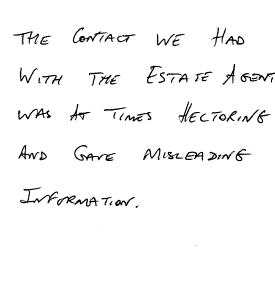 THE CONTACT WE HAD
WITH THE ESTATE AGENT
WAS AT TIMES HECTORING
AND GAVE MISLEADING
INFORMATION.